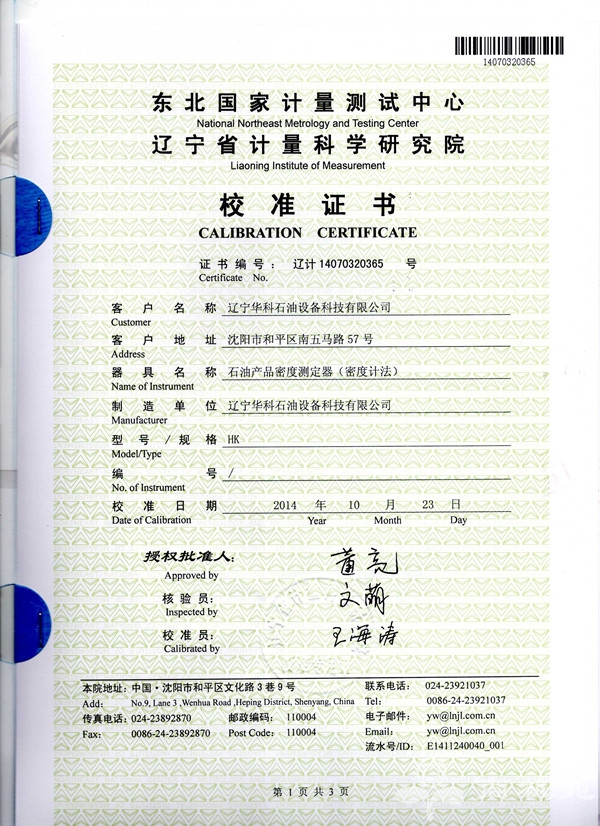 14070320365
东北国家计量测试中心
National Northeast Metrology and Testing Center
辽宁省计量科学研究院
Liaoning Institute of Measurement
校准证书
CALIBRATION CERTIFICATE
证书编号: 辽计14070320365 号
Certificate No.
客户名称 辽宁华科石油设备科技有限公司
Customer
客户地址 沈阳市和平区南五马路57号
Address
器具名称 石油产品密度测定器(密度计法)
Name of Instrument
制造单位 辽宁华科石油设备科技有限公司
Manufacturer
型号/规格 HK
Model/Type
编号 /
No. of Instrument
校准日期 2014 年 10 月 23 日
Date of Calibration Year Month Day
授权批准人:
Approved by
核验员: 文萌
Inspected by
校准员: 王海涛
Calibrated by
本院地址: 中国·沈阳市和平区文化路3巷9号 联系电话: 024-23921037
Add: No.9, Lane 3 ,Wenhua Road ,Heping District, Shenyang, China Tel: 0086-24-23921037
传真电话: 024-23892870 邮政编码: 110004 电子邮件: yw@lnjl.com.cn
Fax: 0086-24-23892870 Post Code: 110004 Email: yw@lnjl.com.cn
流水号/ID: E1411240040_001
第1页共3页